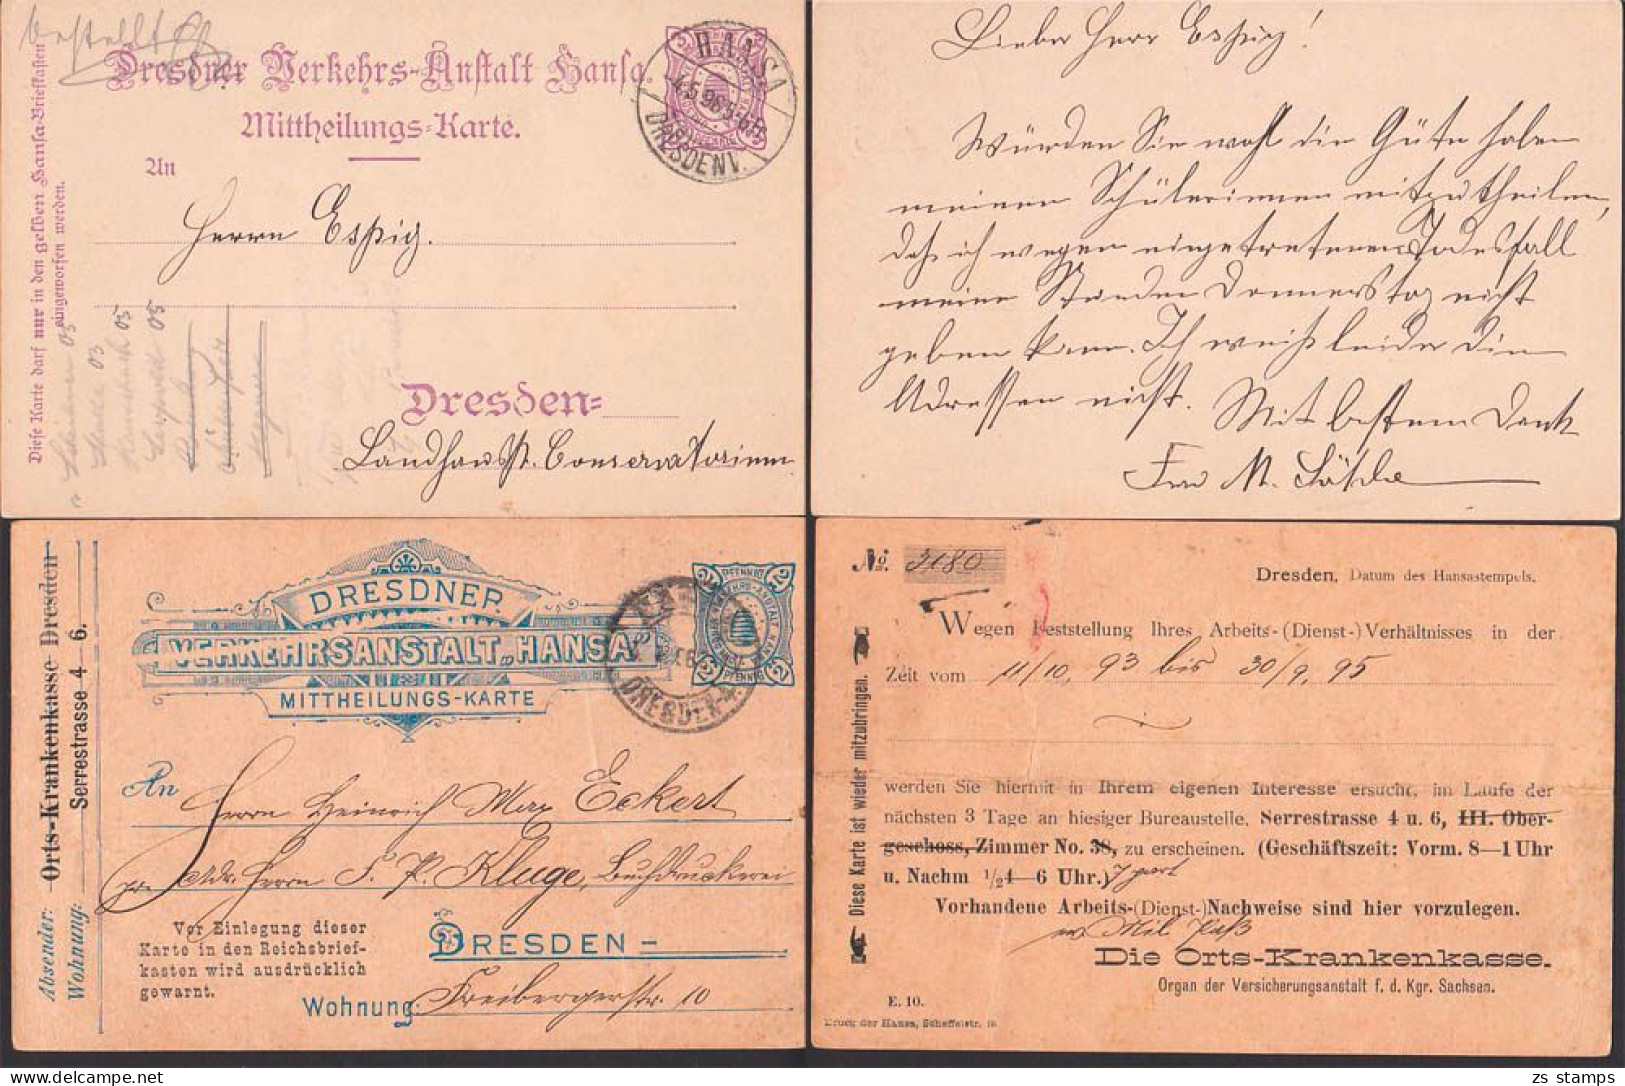 bestellt
Dresdner Verkehrs-Anstalt Hansa.
Mittheilungs-Karte.
An
Herrn Espig.
Dresden-
Landhausstr. Conservatorium
Diese Karte darf nur in den gelben Hansa-Briefkasten
eingeworfen werden.
HANSA
4.5.96.5-6N
DRESDEN 1.
Lieber Herr Espig!
Würden Sie wohl die Güte haben
meinen Schülerinnen mitzutheilen,
daß ich wegen eingetretenen Todesfall
meine Stunden Donnerstag nicht
geben kann. Ich weiß leider die
Adressen nicht. Mit bestem Dank
Frau M.
Absender: Orts-Krankenkasse Dresden
Wohnung: Serrestrasse 4 6.
DRESDNER
VERKEHRSANSTALT „HANSA"
MITTHEILUNGS-KARTE
2 PFENNIG 2
DRESDEN
An Herrn Heinrich Max Eckert
pr. Adr. Herrn F. P. Kluge, Buchdruckerei
Vor Einlegung dieser
Karte in den Reichsbrief-
kasten wird ausdrücklich
gewarnt.
DRESDEN-
Wohnung Freibergerstr. 10
No. 3180
Dresden, Datum des Hansastempels.
Wegen Feststellung Ihres Arbeits-(Dienst-)Verhältnisses in der
Zeit vom 11/10. 93 bis 30/9. 95
werden Sie hiermit in Ihrem eigenen Interesse ersucht, im Laufe der
nächsten 3 Tage an hiesiger Bureaustelle, Serrestrasse 4 u. 6, III. Ober-
geschoss, Zimmer No. 38, zu erscheinen. (Geschäftszeit: Vorm. 8—1 Uhr
u. Nachm 1/24—6 Uhr.)
Vorhandene Arbeits-(Dienst-)Nachweise sind hier vorzulegen.
Mil Paß
Die Orts-Krankenkasse.
Organ der Versicherungsanstalt f. d. Kgr. Sachsen.
E. 10.
Druck der Hansa, Scheffelstr.
Diese Karte ist wieder mitzubringen.
zs stamps